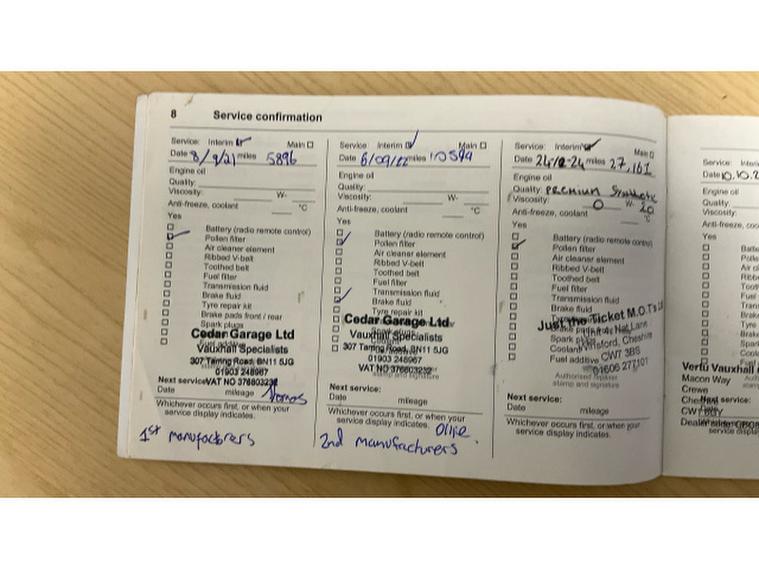 8 Service confirmation
Service: Interim Main
Date 8/9/21 miles 5896
Engine oil
Quality:
Viscosity: W-
Anti-freeze, coolant °C
Yes
Battery (radio remote control)
Pollen filter
Air cleaner element
Ribbed V-belt
Toothed belt
Fuel filter
Transmission fluid
Brake fluid
Tyre repair kit
Brake pads front / rear
Spark plugs
Cedar Garage Ltd
Vauxhall Specialists
307 Tarring Road, BN11 5JG
01903 248967
VAT NO 376803232
Next service:
Date mileage
Whichever occurs first, or when your
service display indicates.
1st manufacturers
Service: Interim Main
Date 6/09/22 miles 10599
Engine oil
Quality:
Viscosity: W-
Anti-freeze, coolant °C
Yes
Battery (radio remote control)
Pollen filter
Air cleaner element
Ribbed V-belt
Toothed belt
Fuel filter
Transmission fluid
Brake fluid
Tyre repair kit
Cedar Garage Ltd
Vauxhall Specialists
307 Tarring Road, BN11 5JG
01903 248967
VAT NO 376803232
stamp and signature
Next service:
Date mileage
Whichever occurs first, or when your
service display indicates. Ollie
2nd manufacturers
Service: Interim Main
Date miles 27,161
Engine oil
Quality: Premium Synthetic
Viscosity: 0 W- 20
Anti-freeze, coolant °C
Yes
Battery (radio remote control)
Pollen filter
Air cleaner element
Ribbed V-belt
Toothed belt
Fuel filter
Transmission fluid
Brake fluid
Just the Ticket M.O.T's
Nat Lane
Winsford, Cheshire
Spark plugs
Coolant
Fuel additive CW7 3BS
01606 277101
Authorised repairer
stamp and signature
Next service:
Date mileage
Whichever occurs first, or when your
service display indicates.
Service: Inter
Date 10.10.2
Engine oil
Quality:
Viscosity:
Anti-freeze, coo
Yes
Vertu Vauxhall
Macon Way
Crewe